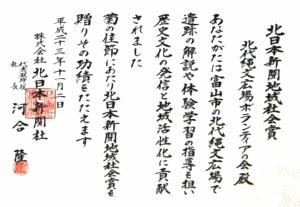 北日本新聞地域社会賞
北代縄文広場ボランティアの会 殿
あなたがたは富山市の北代縄文広場で
遺跡の解説や体験学習の指導を担い
歴史文化の発信と地域活性化に貢献
されました
菊の佳節にあたり北日本新聞地域社会賞を
贈りその功績をたたえます
平成二十三年十一月二日
株式会社 北日本新聞社
代表取締役社長 河合 隆